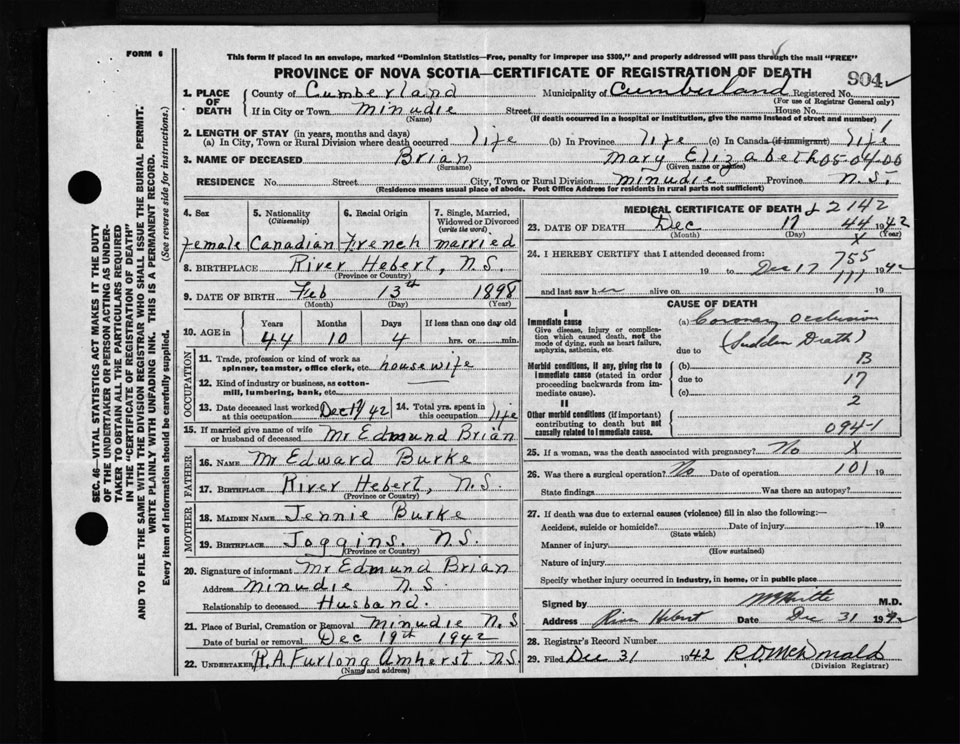 FORM 6
This form if placed in an envelope, marked "Dominion Statistics—Free, penalty for improper use $300," and properly addressed will pass through the mail "FREE"
PROVINCE OF NOVA SCOTIA—CERTIFICATE OF REGISTRATION OF DEATH
904
1. PLACE OF DEATH
County of Cumberland Municipality of Cumberland Registered No.
(For use of Registrar General only)
If in City or Town Minudie Street House No.
(Name) (If death occurred in a hospital or institution, give the name instead of street and number)
2. LENGTH OF STAY (in years, months and days)
(a) In City, Town or Rural Division where death occurred life (b) In Province life (c) In Canada (if immigrant) life
3. NAME OF DECEASED Brian Mary Elizabeth 05-04-00
(Surname) (Given name or names)
RESIDENCE No. Street City, Town or Rural Division Minudie Province N.S.
(Residence means usual place of abode. Post Office Address for residents in rural parts not sufficient)
4. Sex
female
5. Nationality
(Citizenship)
Canadian
6. Racial Origin
French
7. Single, Married, Widowed or Divorced
(write the word)
married
8. BIRTHPLACE River Hebert, N.S.
(Province or Country)
9. DATE OF BIRTH Feb 13th 1898
(Month) (Day) (Year)
10. AGE in
Years Months Days If less than one day old
44 10 4 hrs. or min.
OCCUPATION
11. Trade, profession or kind of work as spinner, teamster, office clerk, etc. housewife
12. Kind of industry or business, as cotton-mill, lumbering, bank, etc.
13. Date deceased last worked at this occupation Dec 17/42
14. Total yrs. spent in this occupation life
15. If married give name of wife or husband of deceased Mr Edmund Brian
FATHER
16. NAME Mr Edward Burke
17. BIRTHPLACE River Hebert, N.S.
(Province or Country)
MOTHER
18. MAIDEN NAME Jennie Burke
19. BIRTHPLACE Joggins. N.S.
(Province or Country)
20. Signature of informant Mr Edmund Brian
Address Minudie N.S.
Relationship to deceased Husband.
21. Place of Burial, Cremation or Removal Minudie N.S
Date of burial or removal Dec 19th 1942
22. UNDERTAKER R.A. Furlong Amherst N.S.
(Name and address)
MEDICAL CERTIFICATE OF DEATH
2142
23. DATE OF DEATH Dec 17 44 1942
(Month) (Day) (Year)
X
24. I HEREBY CERTIFY that I attended deceased from:
755
19 to Dec 17 1942
and last saw her alive on 19
CAUSE OF DEATH
I
Immediate cause
Give disease, injury or complication which caused death, not the mode of dying, such as heart failure, asphyxia, asthenia, etc.
(a) Coronary Occlusion
(Sudden Death)
due to
Morbid conditions, if any, giving rise to immediate cause (stated in order proceeding backwards from immediate cause).
(b) B
due to 17
(c) 2
II
Other morbid conditions (if important) contributing to death but not causally related to immediate cause.
094-1
25. If a woman, was the death associated with pregnancy? No X
26. Was there a surgical operation? No Date of operation 101 19
State findings Was there an autopsy?
27. If death was due to external causes (violence) fill in also the following:—
Accident, suicide or homicide? Date of injury 19
(State which)
Manner of injury
(How sustained)
Nature of injury
Specify whether injury occurred in industry, in home, or in public place
Signed by M.D.
Address River Hebert Date Dec 31 1942
28. Registrar's Record Number
29. Filed Dec 31 1942 R.D. McDonald
(Division Registrar)
SEC. 46—VITAL STATISTICS ACT MAKES IT THE DUTY
OF THE UNDERTAKER OR PERSON ACTING AS UNDER-
TAKER TO OBTAIN ALL THE PARTICULARS REQUIRED
IN THE "CERTIFICATE OF REGISTRATION OF DEATH"
AND TO FILE THE SAME WITH THE DIVISION REGISTRAR WHO SHALL ISSUE THE BURIAL PERMIT.
WRITE PLAINLY WITH UNFADING INK. THIS IS A PERMANENT RECORD.
Every item of information should be carefully supplied. (See reverse side for instructions.)